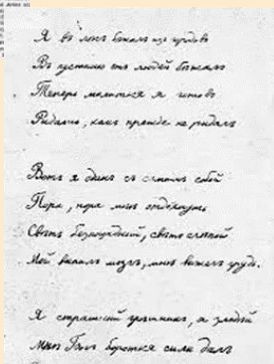 Я въ лѣсъ бѣжалъ изъ городовъ
Въ пустыню отъ людей бѣжалъ
Теперь молиться я готовъ
Рыдать, какъ прежде не рыдалъ
Вотъ я одинъ съ самимъ собой
Пора, пора мнѣ отдохнуть
Свѣтъ безпощадный, свѣтъ слѣпой
Мой выпилъ мозгъ, мнѣ выжегъ грудь.
Я страшный грѣшникъ, я злодѣй
Мнѣ Богъ бороться силы далъ